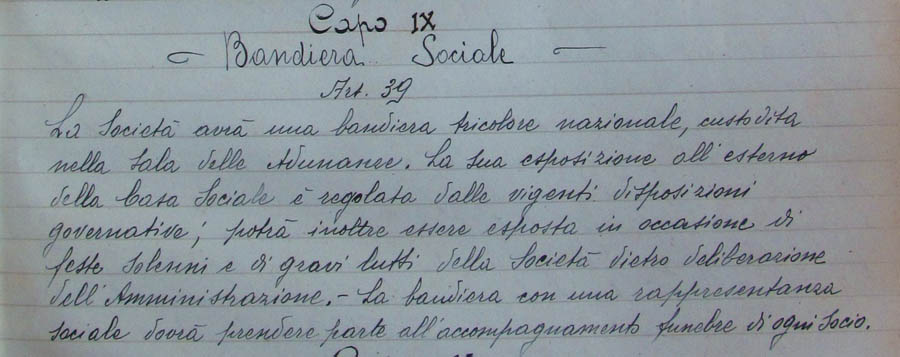 Capo IX
Bandiera Sociale
Art. 39
La Società avrà una bandiera tricolore nazionale, custodita
nella sala delle Adunanze. La sua esposizione all'esterno
della Casa Sociale è regolata dalle vigenti disposizioni
governative; potrà inoltre essere esposta in occasione di
feste solenni e di gravi lutti della Società dietro deliberazione
dell'Amministrazione. - La bandiera con una rappresentanza
sociale dovrà prendere parte all'accompagnamento funebre di ogni Socio.